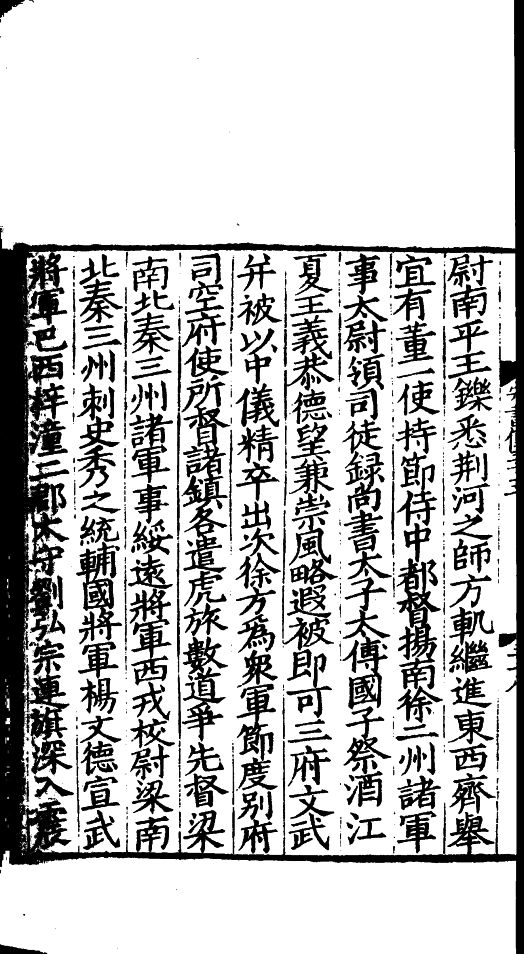 尉南平王鑠悉荆河之師方軌繼進東西齊舉
宜有董一使持節侍中都督揚南徐二州諸軍
事太尉領司徒録尚書太子太傅國子祭酒江
夏王義恭德望兼崇風略遐被即可三府文武
并被以中儀精卒出次徐方爲衆軍節度别府
司空府使所督諸鎮各遣虎旅數道爭先督梁
南北秦三州諸軍事綏遠將軍西戎校尉梁南
北秦三州刺史秀之統輔國將軍楊文德宣武
將軍巴西梓潼二郡太守劉弘宗連旗深入震